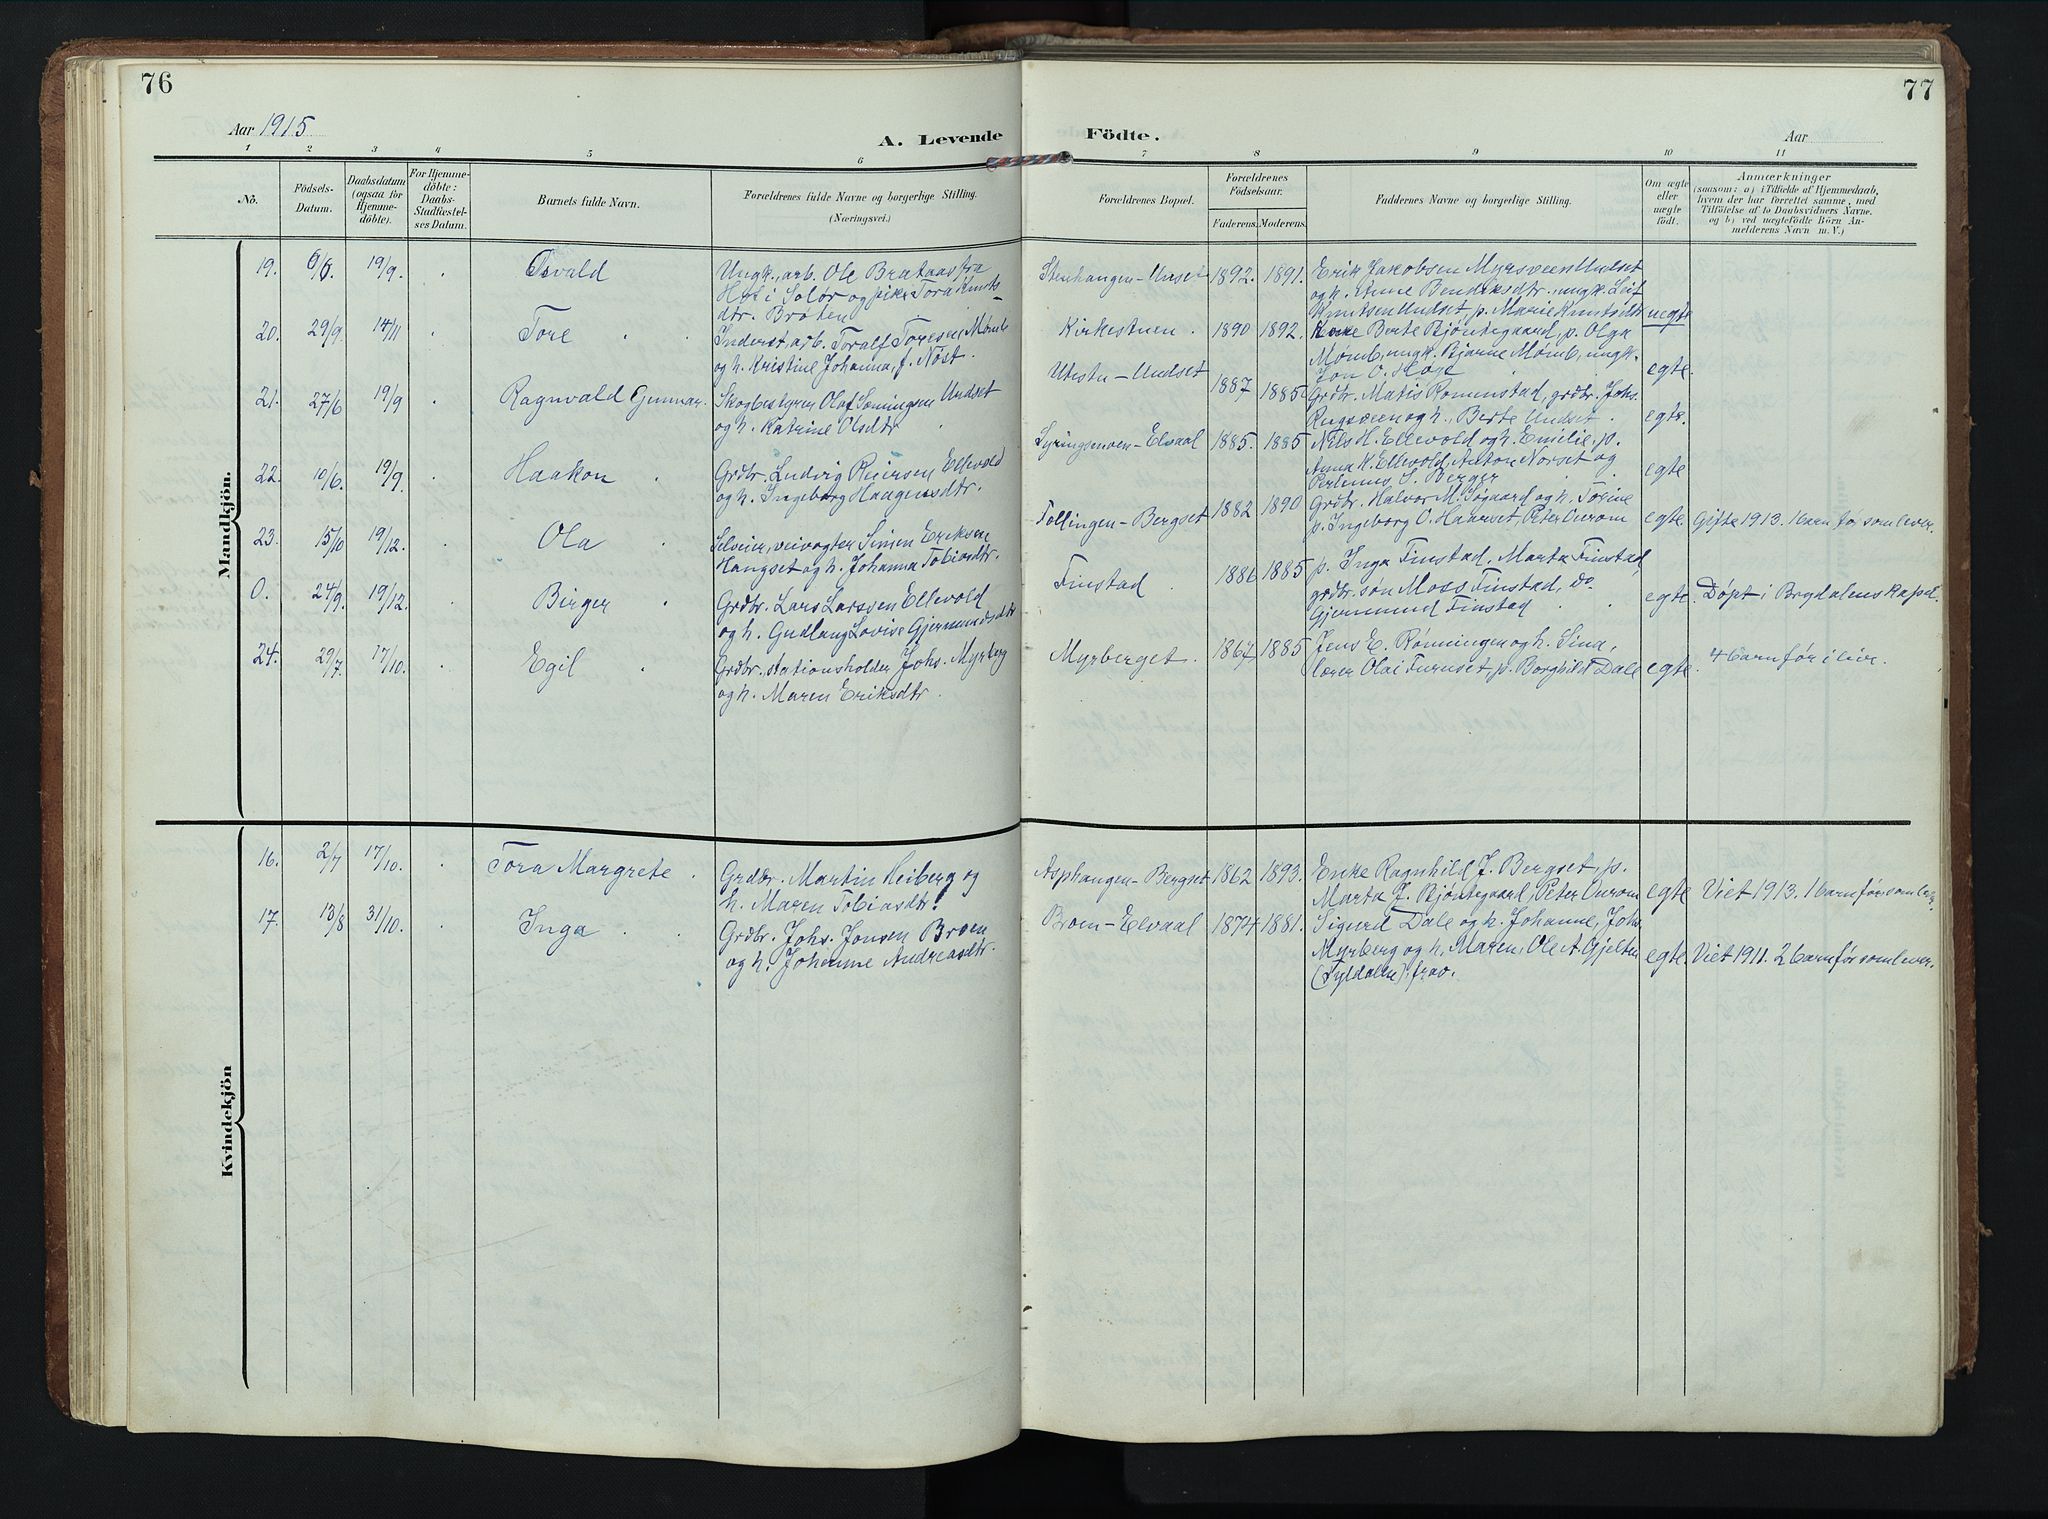 76
77
Aar 1915
A. Levende Födte.
Aar
1 2 3 4 5 6 7 8 9 10 11
No.
Födsels-Datum.
Daabsdatum (ogsaa for Hjemme-döbte).
For Hjemme-döbte: Daabs-Stadfæstel-ses Datum.
Barnets fulde Navn.
Forældrenes fulde Navne og borgerlige Stilling.
(Næringsvei.)
Forældrenes Bopæl.
Forældrenes Födselsaar.
Faderens. Moderens.
Faddernes Navne og borgerlige Stilling.
Om ægte eller uægte födt.
Anmærkninger
(saasom: a) i Tilfælde af Hjemmedaab,
hvem der har forrettet samme, med
Tilföielse af to Daabsvidners Navne.
og b) ved uægtefödte Börn An-
melderens Navn m. V.)
Mandkjön.
19. 6/6. 19/9. Osvald
Ungk., arb. Ole Brataas fra
Hof i Solør og pike Tora Knuts
dtr. Bråten
Stenhangen-Unset 1892. 1891.
Erik Jakobsen Myrsveen Undset
og h. Anne Bendiksdtr. ungk. Leif
Knutsen Undset, p. Marie Knutsdtr
uegte
20. 29/9. 14/11 Tore
Inderst, arb. Toralf Toresen Mømb
og h. Kristine Johanna, f. Nöst.
Kirkestuen. 1890 1892.
Enke Berte Bjöntegaard, p. Olga
Mømb, ungk. Bjarne Mømb, ungk.
Jon O. Höje
egte.
21. 27/6 19/9 Ragnvald Gunnar.
Skogbestyrer Olaf Sæmingsen Undset
og h. Katrine Olsdtr
Utistu-Undset 1887 1885
Grdbr. Matis Romenstad, grdbr. Johs.
Rugsveen og h., Berte Undset.
egte.
22. 10/6. 19/9. Haakon
Grdbr. Ludvig Reiersen Ellevold
og h. Ingeborg Haagensdtr.
Lyringsmoen-Elvaal 1885. 1885
Nils H. Ellevold og h. Emilie, p.
Anna K. Ellevold, Anton Norset og
Perlenus S. Berger
egte
23. 15/10 19/12. Ola
Selveier, veivogter Simen Eriksen
Hangset og h. Johanna Tobiasdtr.
Tollingen-Bergset 1882 1890
Grdbr. Halvor M. Søgaard og h. Torine
p. Ingeborg O. Haarset, Peter Qurom
egte Gifte 1913. 1 barn før som lever.
0. 24/9. 19/12. Birger
Grdbr. Lars Larssen Ellevold
og h. Gudlaug Lovise Gjermundsdtr
Finstad 1886 1885
p. Inga Finstad, Marta Finstad,
grdbr. søn Moss Finstad, Do
Gjermund Finstad
egte. Døpt i Brydalens kapel.
24. 29/7. 17/10. Egil
Grdbr. stationsholder Johs. Myrberg
og h. Maren Eriksdtr.
Myrberget. 1867 1885
Jens E. Rønningen og h. Lina,
lærer Olai Furuset, p. Borghild Dale
egte. 4 barn før i live.
Kvindekjön
16. 2/7 17/10. Tora Margrete.
Grdbr. Martin Heiberg og
h. Maren Tobiasdtr.
Asphaugen-Bergset 1862 1893.
Enke Ragnhild J. Bergset, p.
Marta J. Bjöntegaard, Peter Qurom
egte Viet 1913. 1 barn før som lever.
17. 13/8 31/10. Inga
Grdbr. Johs. Jonsen Broen
og h. Johanne Andreasdtr.
Broen-Elvaal 1874 1881.
Sigurd Dale og h. Johanne, Johs.
Myrberg og h. Maren, Ole A. Gjelten
(Tyldalen), frav.
egte. Viet 1911. 2 barn før som lever.